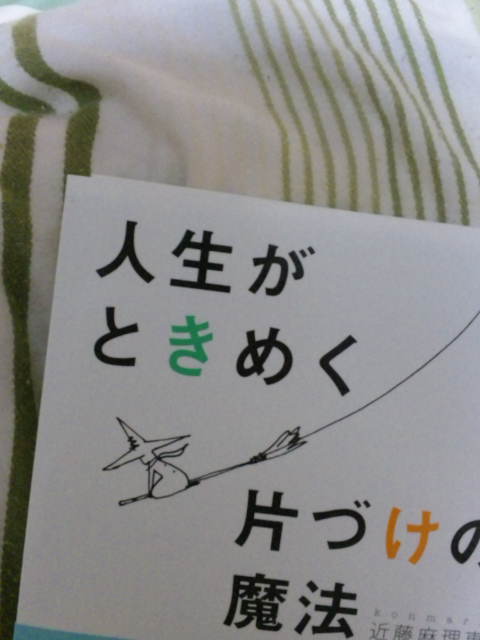 人生が
ときめく
片づけの
魔法
konmar
近藤麻理恵